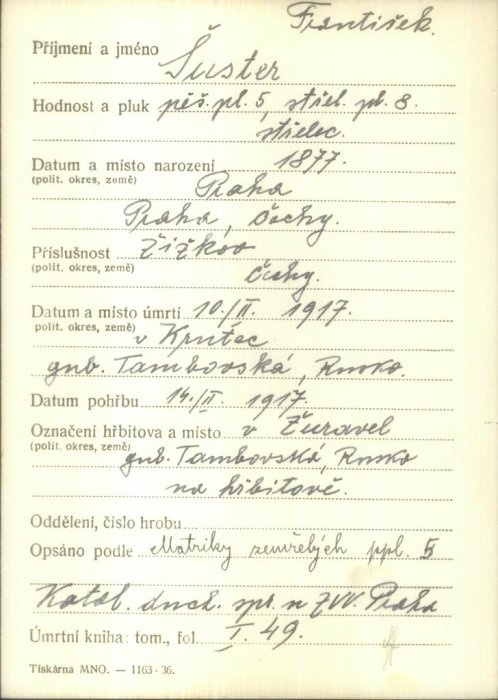 František.
Příjmení a jméno Šuster
Hodnost a pluk pěš. pl. 5, střel. pl. 8.
střelec.
Datum a místo narození 1877.
(polit. okres, země) Praha
Praha, Čechy.
Příslušnost Žižkov
(polit. okres, země) Čechy.
Datum a místo úmrtí 10/II. 1917.
polit. okres, země) v Krutec
gub. Tambovská, Rusko.
Datum pohřbu 14/II. 1917.
Označení hřbitova a místo v Žuravel
(polit. okres, země) gub. Tambovská, Rusko
na hřbitově.
Oddělení, číslo hrobu
Opsáno podle Matriky zemřelých ppl. 5
Katol. duch. spr. u ZVV. Praha
Úmrtní kniha: tom., fol. I. 49.
Tiskárna MNO. — 1163-36.